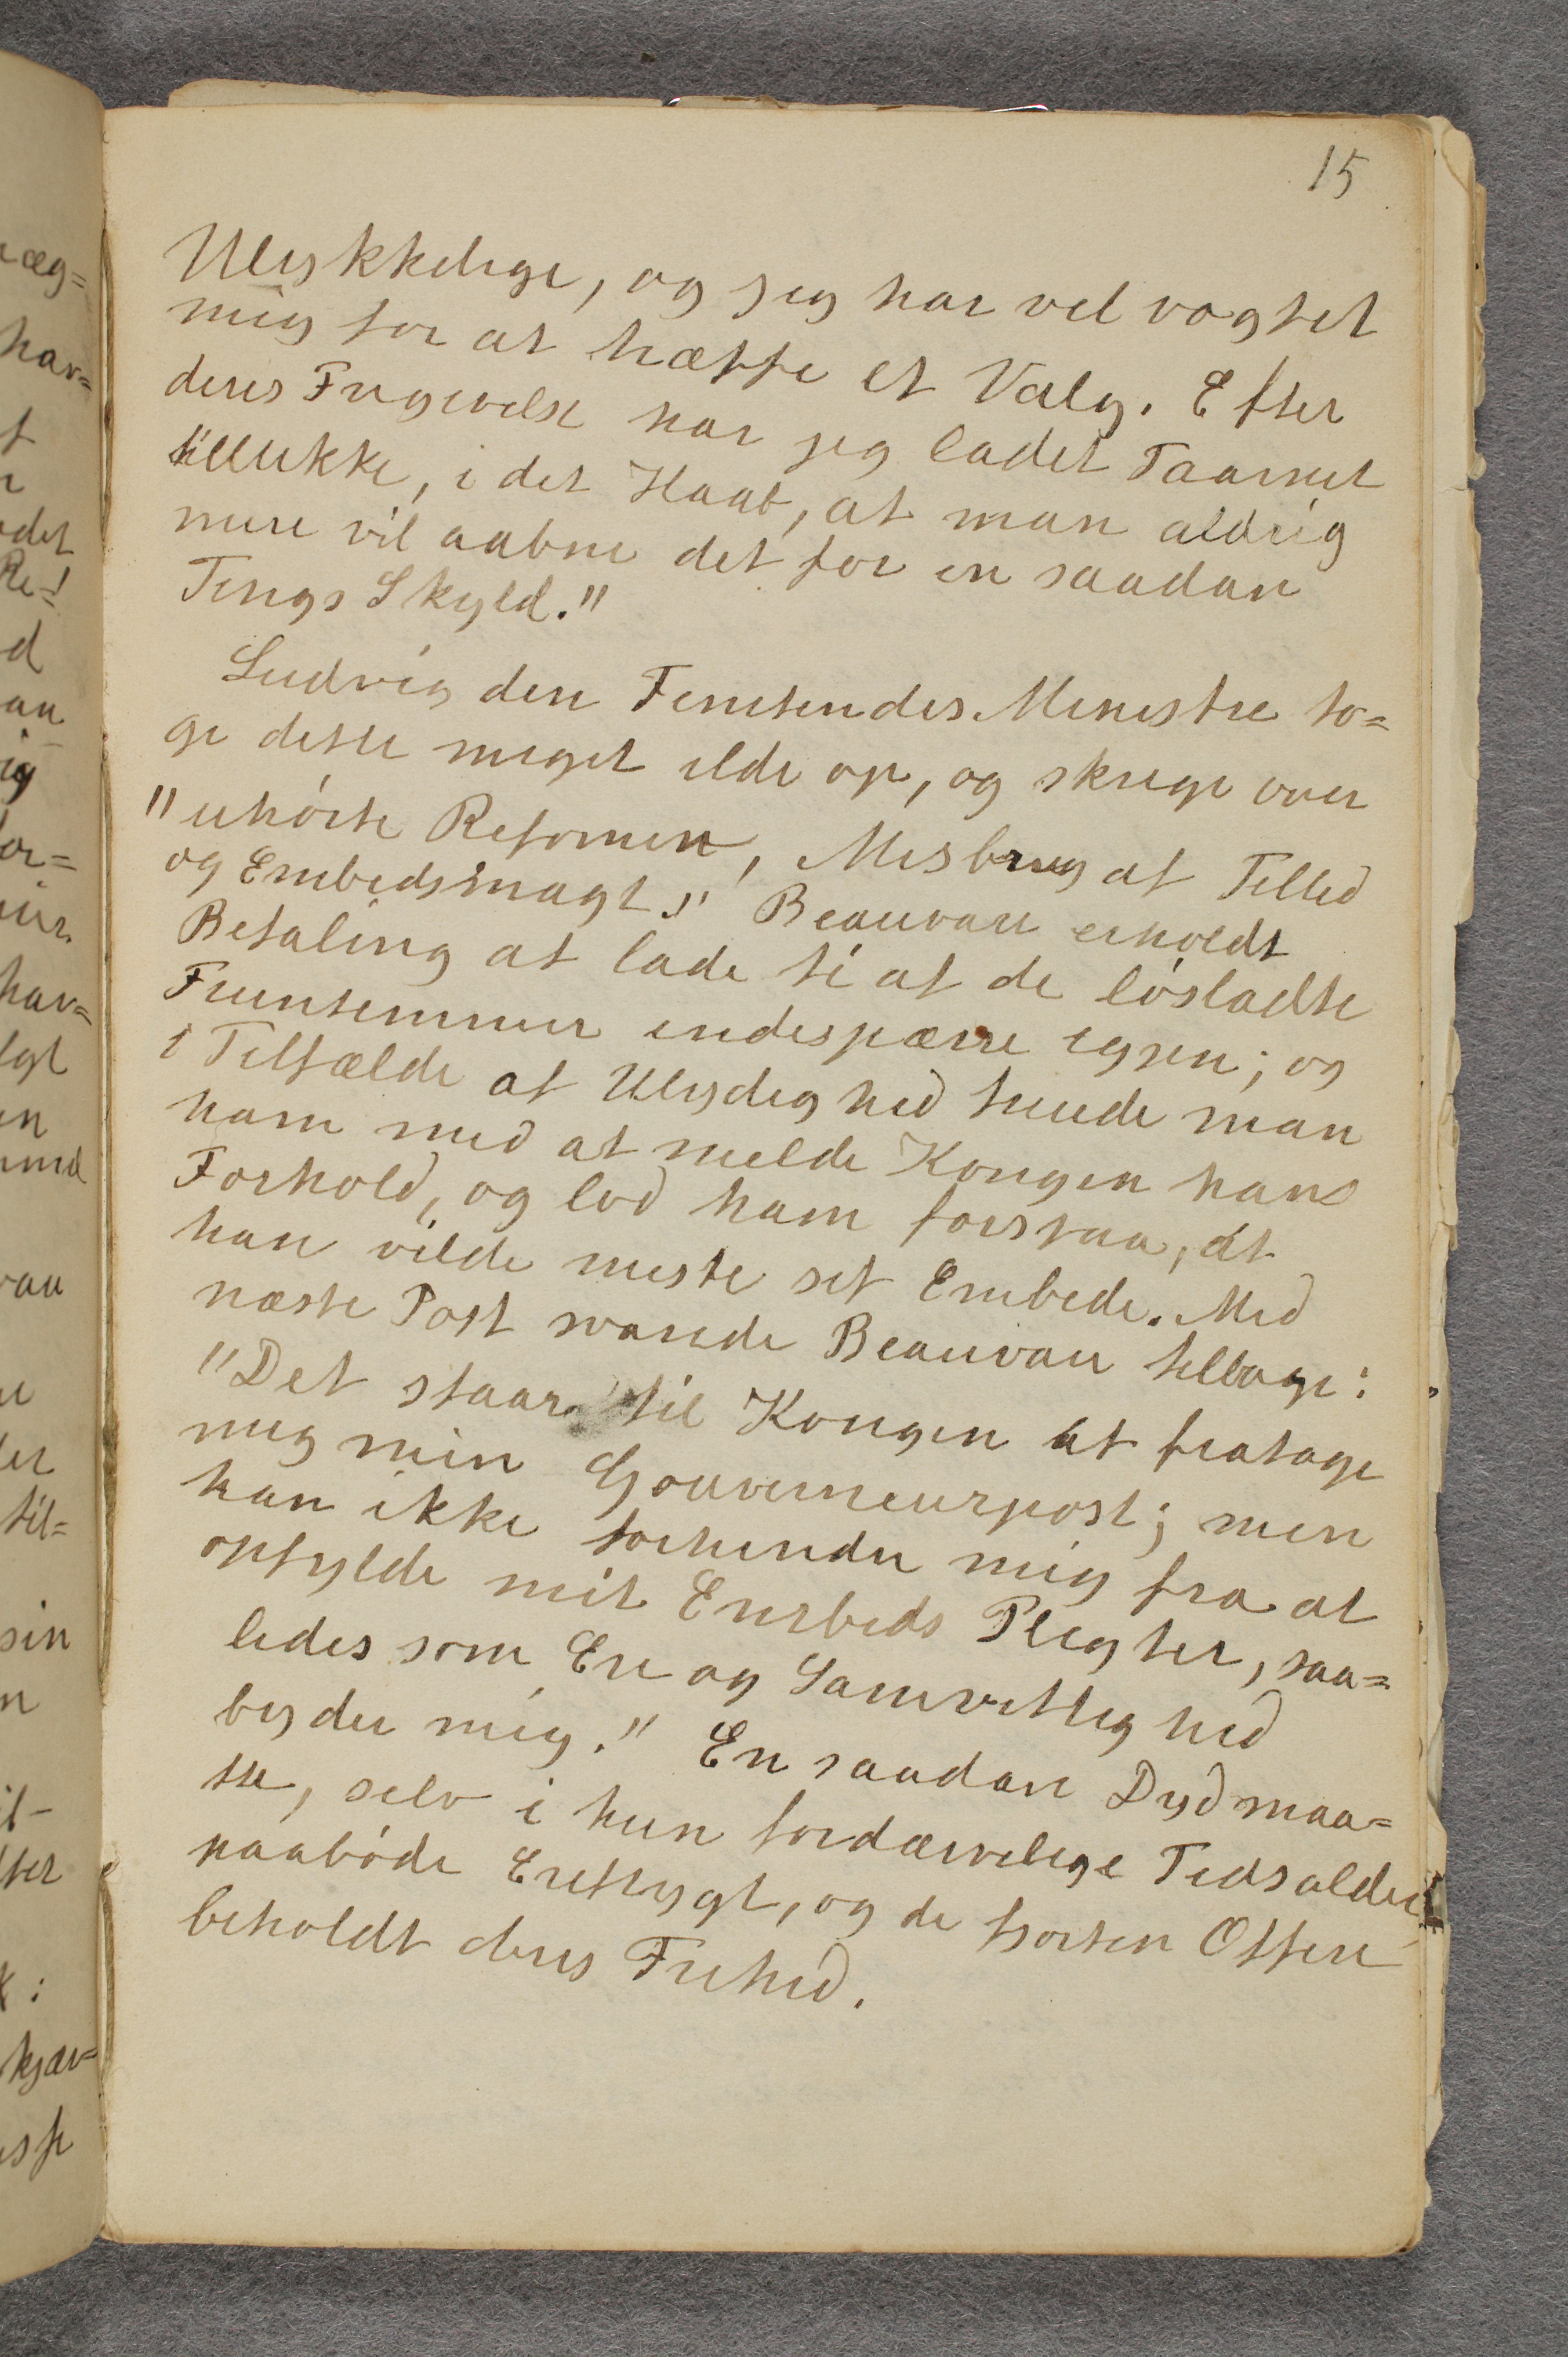 15
Ulykkelige, og jeg har vel vogtet
mig for at træffe et Valg. Efter
deres Frigivelse har jeg ladet Taarnet
tillukke, i det Haab, at man aldrig
mere vil aabne det for en saadan
Tings Skyld."
Ludvig den Femtendes Ministre to=
ge dette meget ilde op, og skrege over
"uhörte Reformer, Misbrug af Tillid
og Embedsmagt." Beauvau erholdt
Befaling at lade ti af de lösladte
Fruentimmer indespærre igjen; og
i Tilfælde af Ulydighed truede man
ham med at melde Kongen hans
Forhold, og lod ham forstaa, at
han vilde miste sit Embede. Med
næste Post svarede Beauvau tilbage:
"Det staar til Kongen at fratage
mig min Gouverneurpost; men
han ikke forhindre mig fra at
opfylde mit Embeds Pligter, saa=
ledes som Ere og Samvittighed
byder mig." En saadan Dyd maa=
tte, selv i hun fordærvelige Tidsalder
paaböde Erefrygt, og de fjorten Offere
beholdt deres Frihed.
æg=
hav=
t
odet
Re-!
d
an
ig
for=
hav=
igt
en
vau
der
til=
sin
n
il-
fter
k:
kjær=